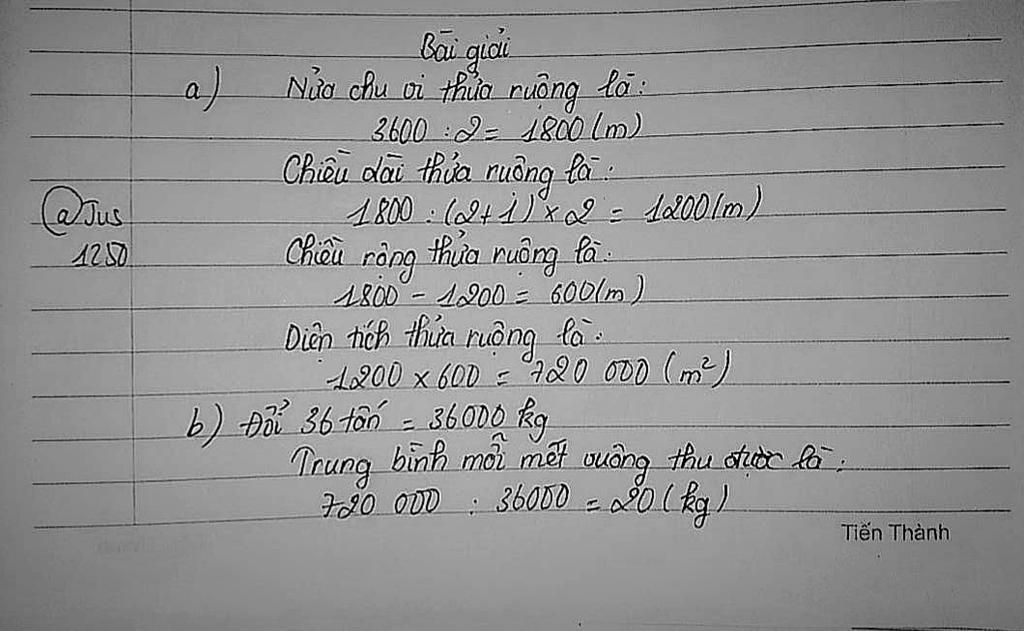 Bài giải
a) Nửa chu vi thửa ruộng là:
3600 : 2 = 1800 (m)
Chiều dài thửa ruộng là:
1800 : (2 + 1) × 2 = 1200 (m)
@Jus
1250
Chiều rộng thửa ruộng là:
1800 - 1200 = 600 (m)
Diện tích thửa ruộng là:
1200 × 600 = 720 000 (m²)
b) Đổi 36 tấn = 36000 kg
Trung bình mỗi mét vuông thu được là:
720 000 : 36000 = 20 (kg)
Tiến Thành